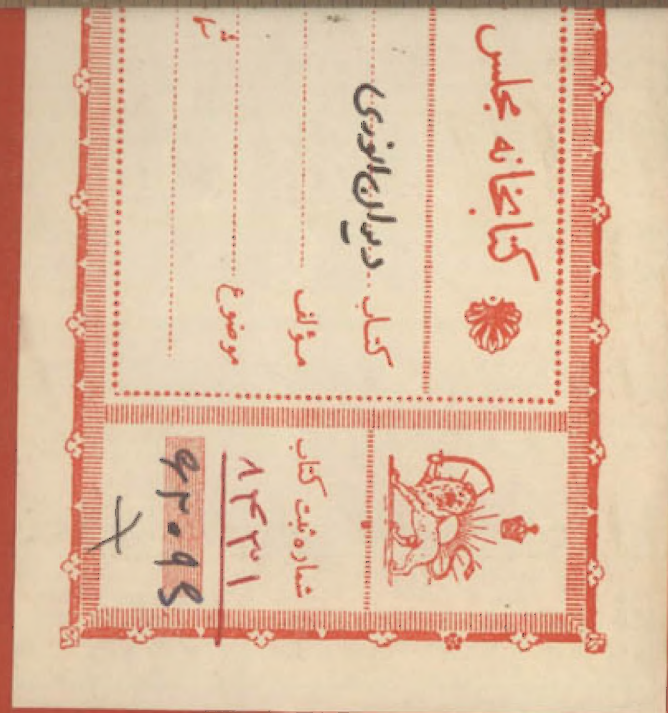 کتابخانه مجلس
کتاب دیوان انوری
مؤلف
موضوع
شماره ثبت کتاب
۸۴۳۱